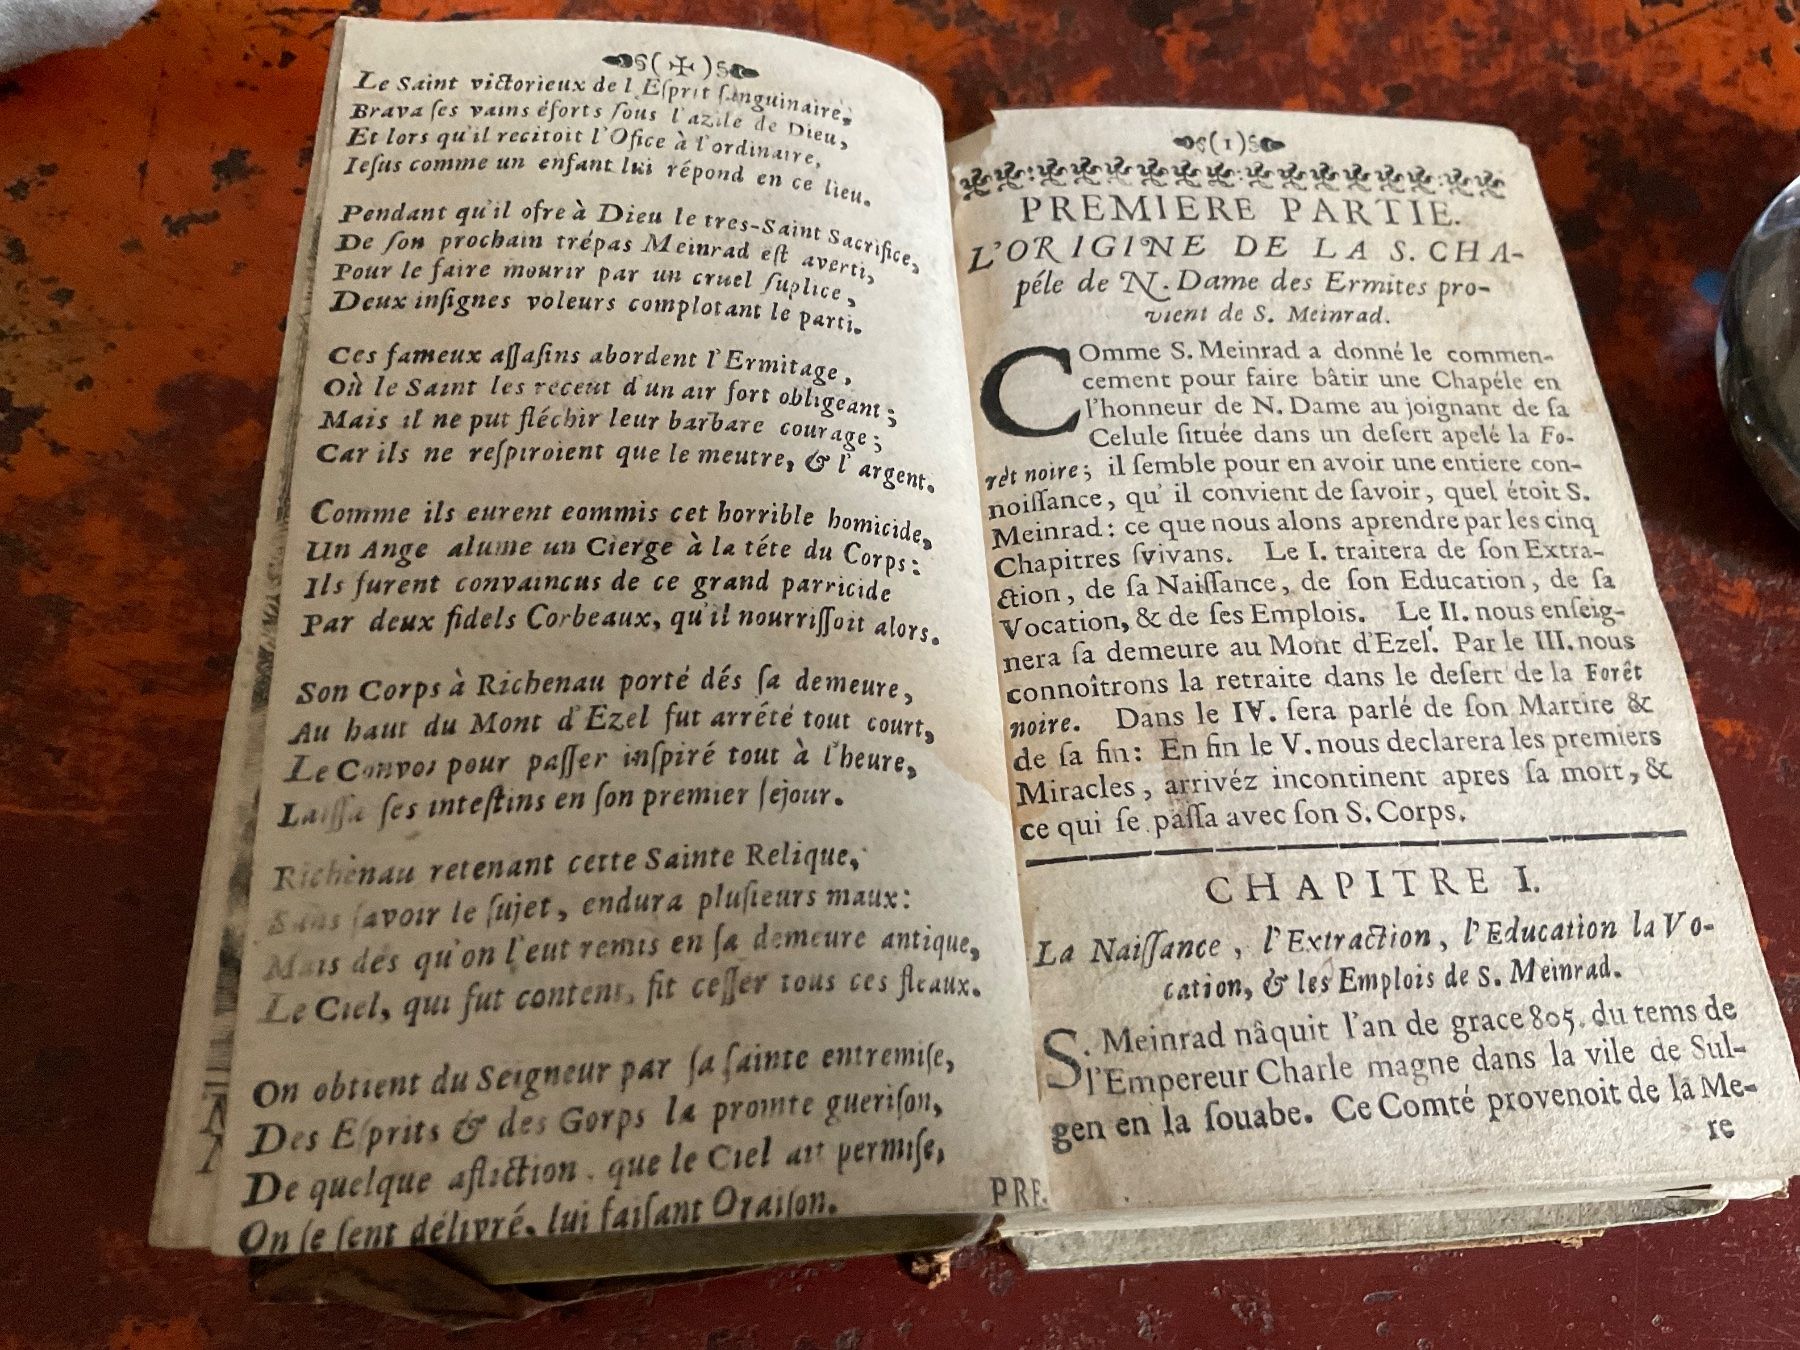 §( ✠ )§
Le Saint victorieux de l'Eſprit ſanguinaire,
Brava ſes vains éforts ſous l'azile de Dieu,
Et lors qu'il recitoit l'Ofice à l'ordinaire,
Ieſus comme un enfant lui répond en ce lieu.
Pendant qu'il ofre à Dieu le tres-Saint Sacrifice,
De ſon prochain trépas Meinrad eſt averti,
Pour le faire mourir par un cruel ſuplice,
Deux inſignes voleurs complotant le parti.
Ces fameux aſſaſins abordent l'Ermitage,
Où le Saint les receut d'un air fort obligeant;
Mais il ne put fléchir leur barbare courage;
Car ils ne reſpiroient que le meutre, & l'argent.
Comme ils eurent eommis cet horrible homicide,
Un Ange alume un Cierge à la téte du Corps:
Ils furent convaincus de ce grand parricide
Par deux fidels Corbeaux, qu'il nourriſſoit alors.
Son Corps à Richenau porté dés ſa demeure,
Au haut du Mont d'Ezel fut arrété tout court,
Le Convoi pour paſſer inſpiré tout à l'heure,
Laiſſa ſes inteſtins en ſon premier ſejour.
Richenau retenant cette Sainte Relique,
Sans ſavoir le ſujet, endura pluſieurs maux:
Mais dés qu'on l'eut remis en ſa demeure antique,
Le Ciel, qui fut content, fit ceſſer tous ces fleaux.
On obtient du Seigneur par ſa ſainte entremiſe,
Des Eſprits & des Gorps la promte gueriſon,
De quelque afliction que le Ciel ait permiſe,
On ſe ſent délivré, lui faiſant Oraiſon.
PRE-
§( 1 )§
PREMIERE PARTIE.
L'ORIGINE DE LA S. CHA-
péle de N. Dame des Ermites pro-
vient de S. Meinrad.
COmme S. Meinrad a donné le commen-
cement pour faire bâtir une Chapéle en
l'honneur de N. Dame au joignant de ſa
Celule ſituée dans un deſert apelé la Fo-
rét noire; il ſemble pour en avoir une entiere con-
noiſſance, qu'il convient de ſavoir, quel étoit S.
Meinrad: ce que nous alons aprendre par les cinq
Chapitres ſvivans. Le I. traitera de ſon Extra-
ction, de ſa Naiſſance, de ſon Education, de ſa
Vocation, & de ſes Emplois. Le II. nous enſeig-
nera ſa demeure au Mont d'Ezel. Par le III. nous
connoîtrons la retraite dans le deſert de la Forêt
noire. Dans le IV. ſera parlé de ſon Martire &
de ſa fin: En fin le V. nous declarera les premiers
Miracles, arrivéz incontinent apres ſa mort, &
ce qui ſe paſſa avec ſon S. Corps.
CHAPITRE I.
La Naiſſance, l'Extraction, l'Education la Vo-
cation, & les Emplois de S. Meinrad.
S. Meinrad nâquit l'an de grace 805. du tems de
l'Empereur Charle magne dans la vile de Sul-
gen en la ſouabe. Ce Comté provenoit de la Me-
re